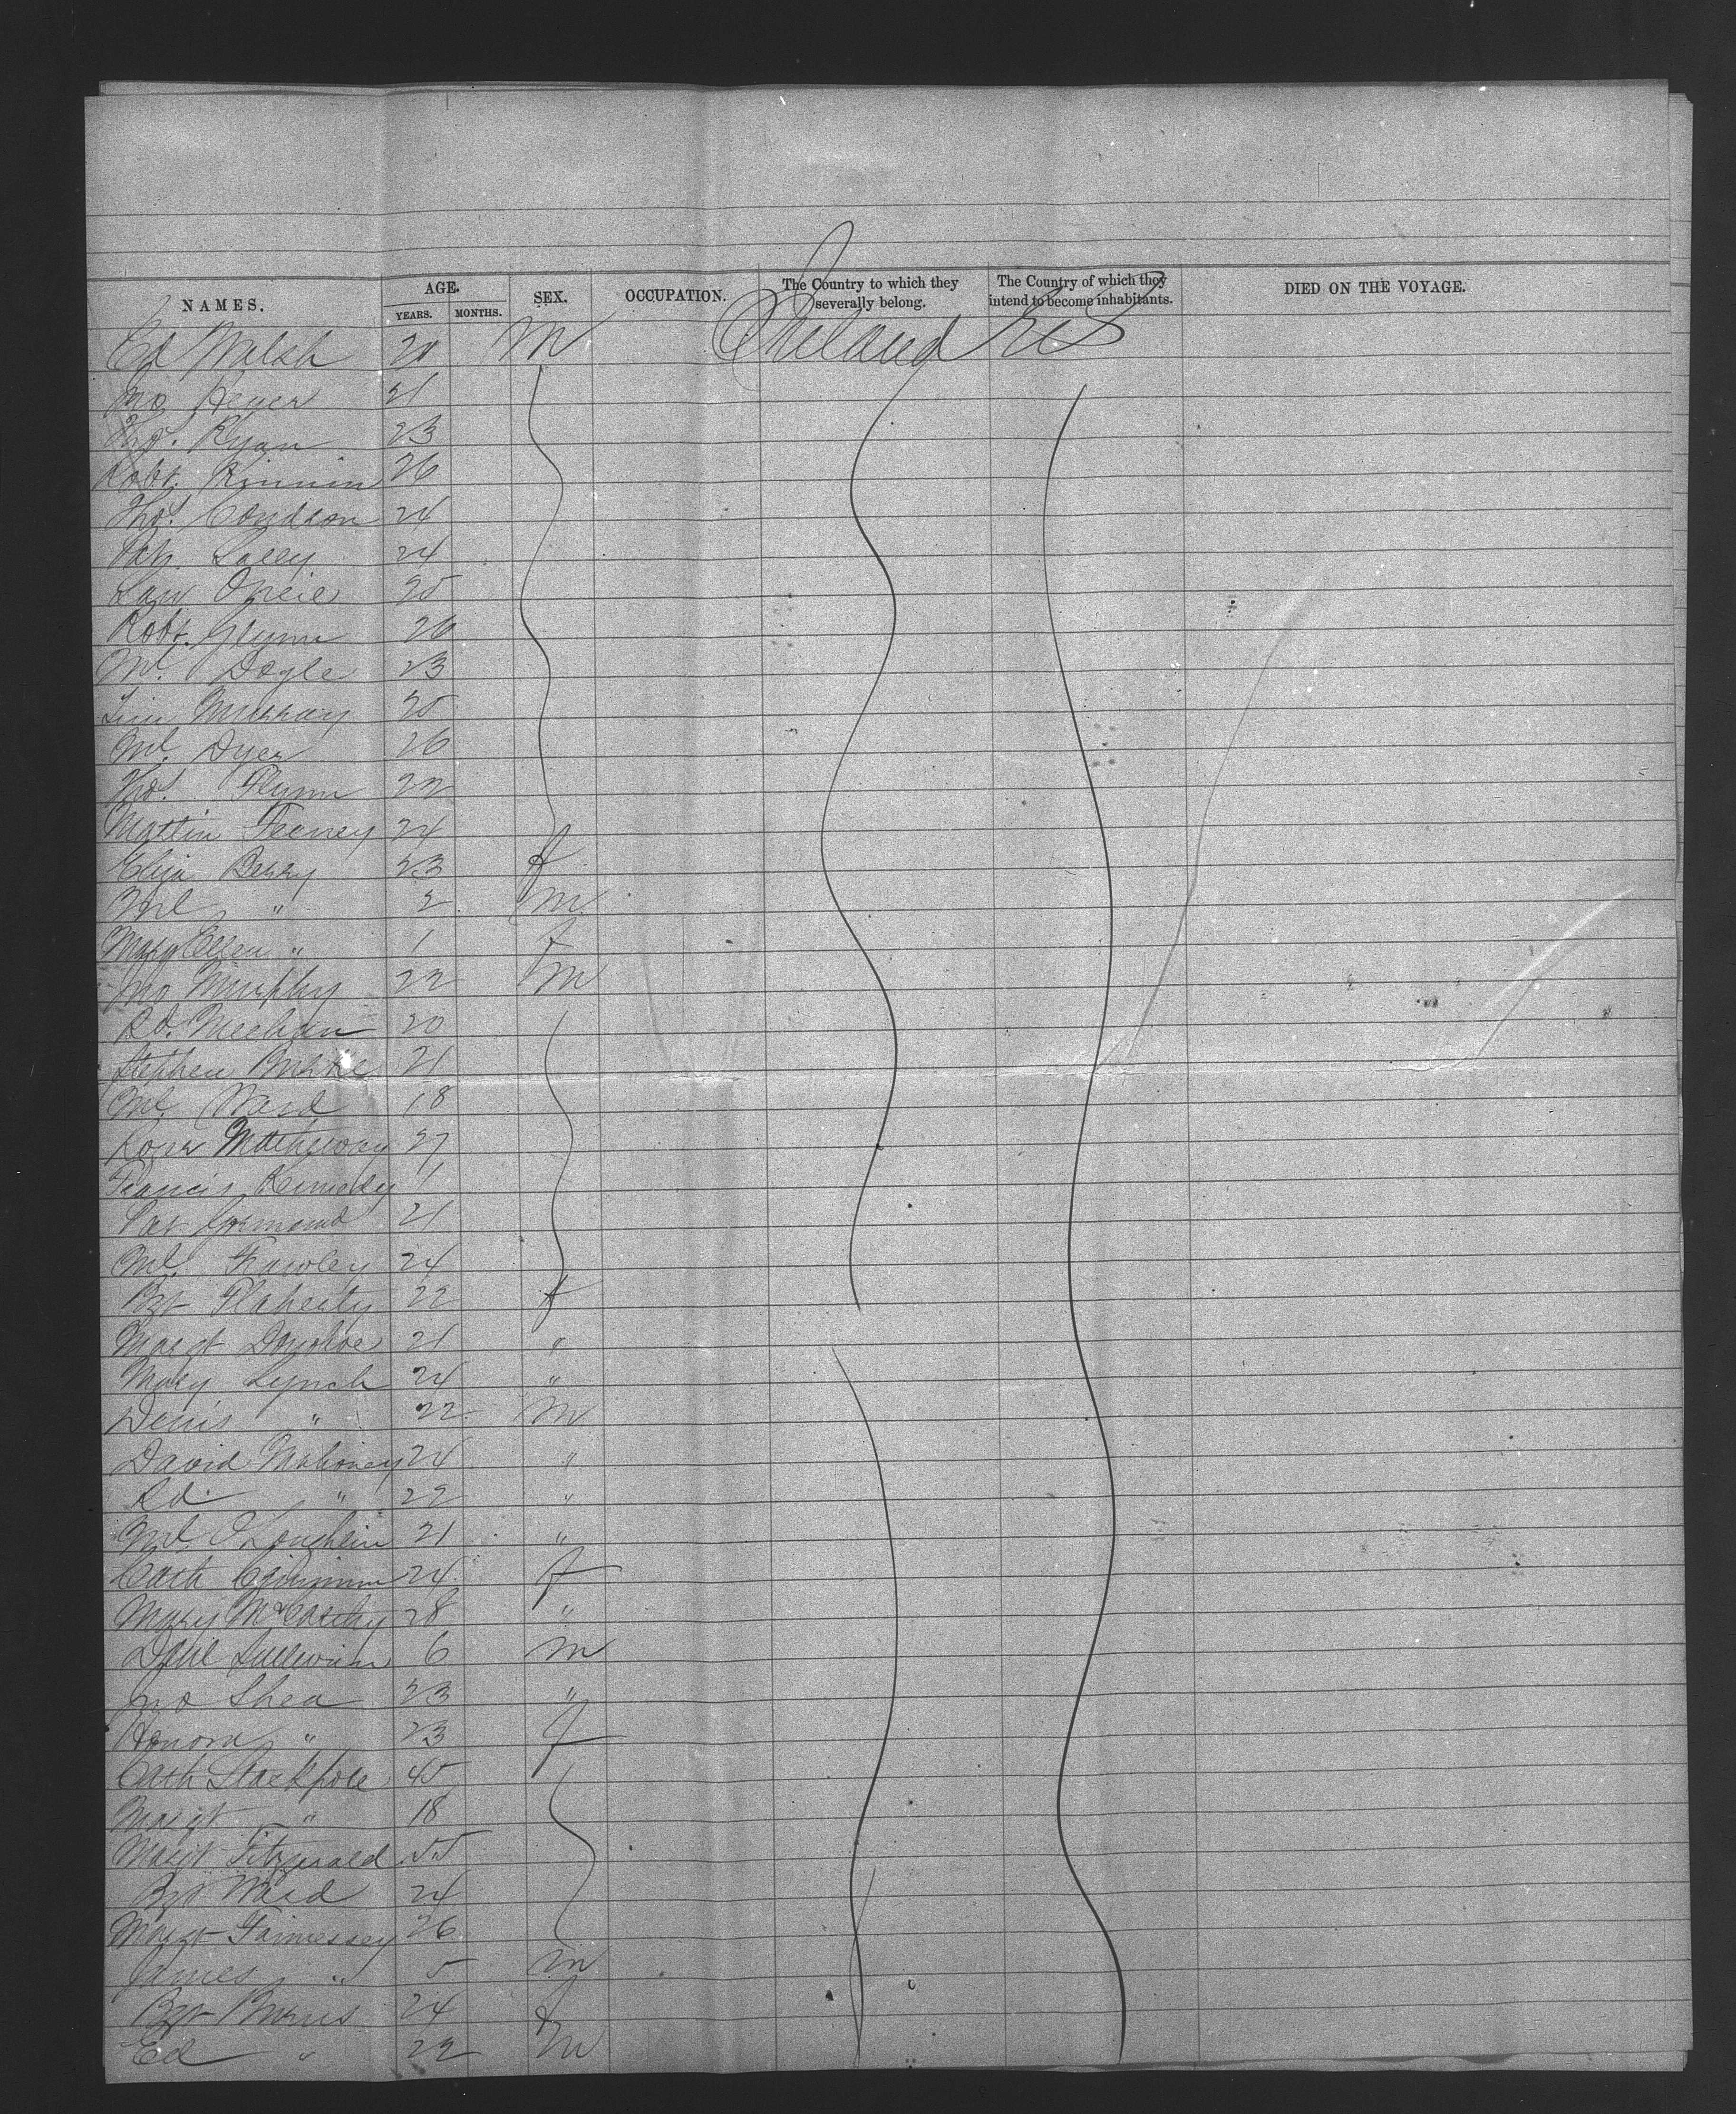 NAMES. AGE. YEARS. MONTHS. SEX. OCCUPATION. The Country to which they severally belong. The Country of which they intend to become inhabitants. DIED ON THE VOYAGE.
Ed Welsh 20 M Ireland U S
Jno 21
Thos. Ryan 23
Robt. 26
Thos. 24
Pat. 24
Law 25
Robt. Glynn 26
Ml. Doyle 23
Tim Murray 25
Ml. Dyer 26
Thos. Flynn 22
Martin Feeney 24
Eliza Berry 23 f
Ml " 2 M
Mary Ellen " 1 f
Jno Murphy 22 M
Rd. Meehan 20
Stephen Burke 21
Ml. Ward 18
27
Francis Kennedy 11
Pat 21
Ml. Frawley 24
Bgt Flaherty 22 f
Margt Donohoe 21 "
Mary Lynch 24 "
Denis " 22 M
David Mahoney 24 "
Rd. " 22 "
Ml O'Loughlin 21 "
Cath 24 f
Mary McCarthy 28 "
Danl Sullivan 6 M
Jno Shea 23 "
Honora " 23 f
Cath Stackpole 45
Margt " 18
Margt Fitzgerald 55
Bgt Ward 24
Margt 26
James " 5 M
Bgt Burns 24 f
Ed " 22 M